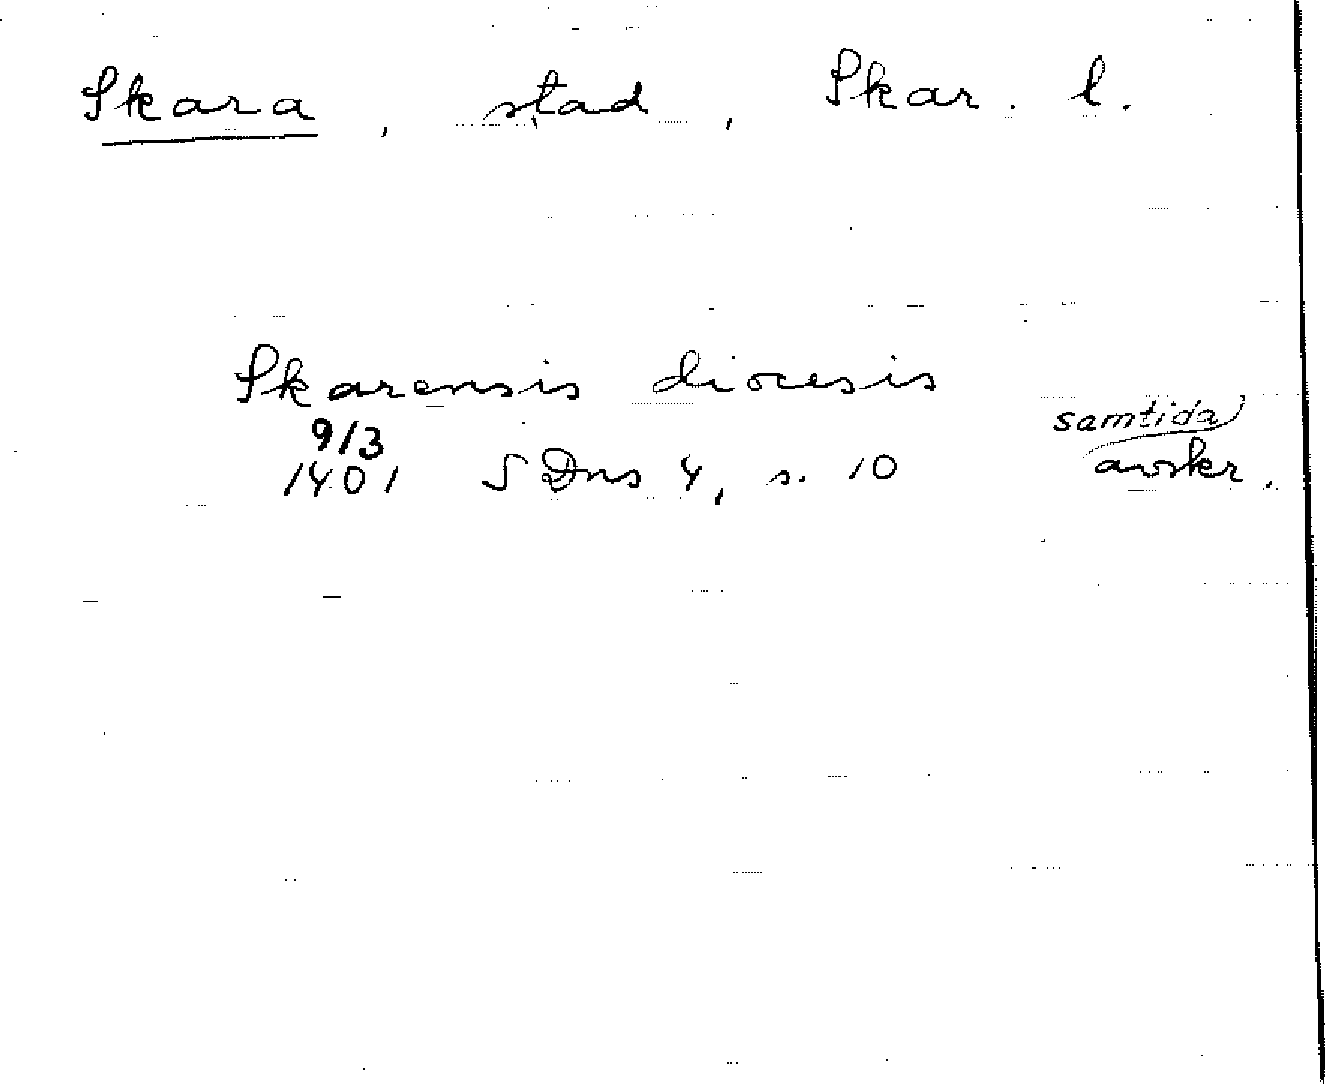 Skara, stad, Skar. l.
Skarensis diocesis
9/3
1401 SDns 4, s. 10
samtida
avskr.